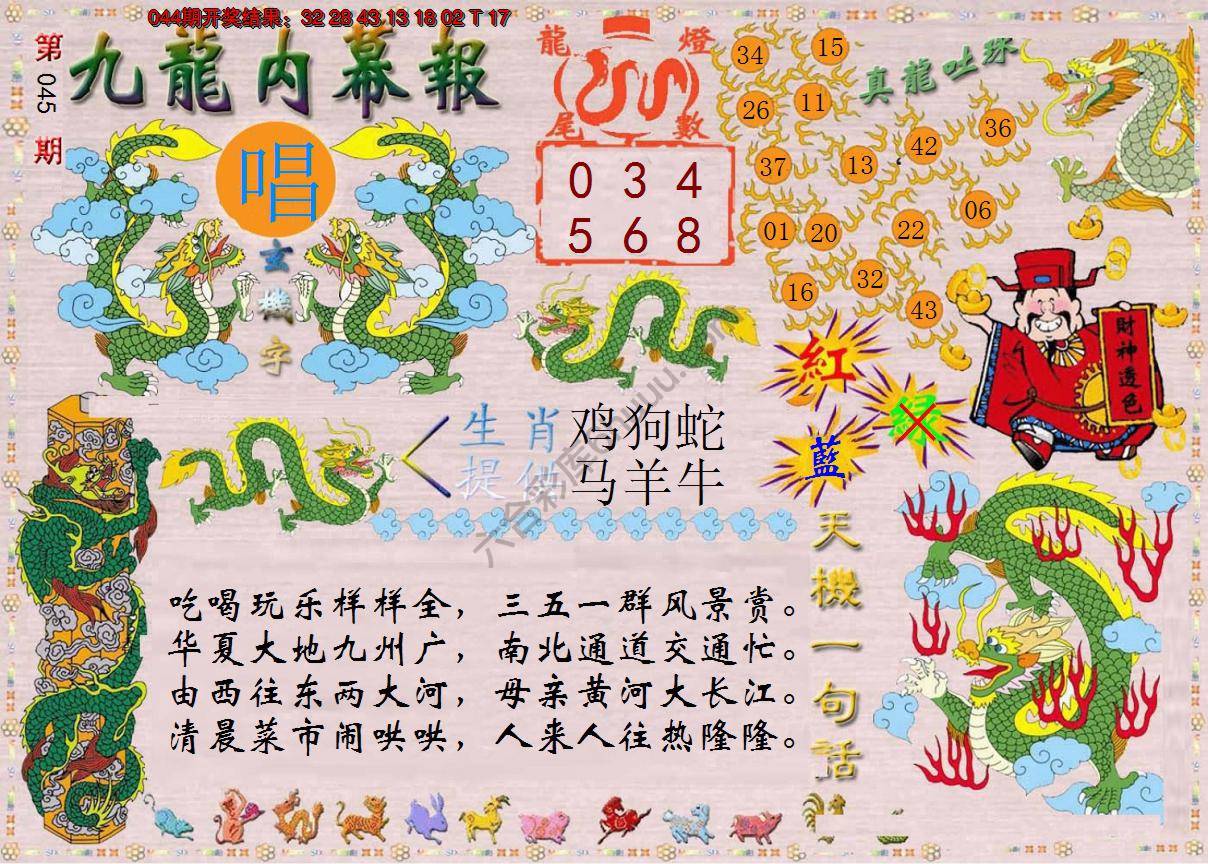 044期开奖结果：32 28 43 13 18 02 T 17
第
045
期
九龍内幕報
唱
玄
機
字
龍
燈
尾
數
0 3 4
5 6 8
真龍吐珠
34
15
26
11
37
13
42
36
01
20
22
06
16
32
43
財神透色
紅
绿
藍
生肖
提供
鸡狗蛇
马羊牛
天機一句話
吃喝玩乐样样全，三五一群风景赏。
华夏大地九州广，南北通道交通忙。
由西往东两大河，母亲黄河大长江。
清晨菜市闹哄哄，人来人往热隆隆。